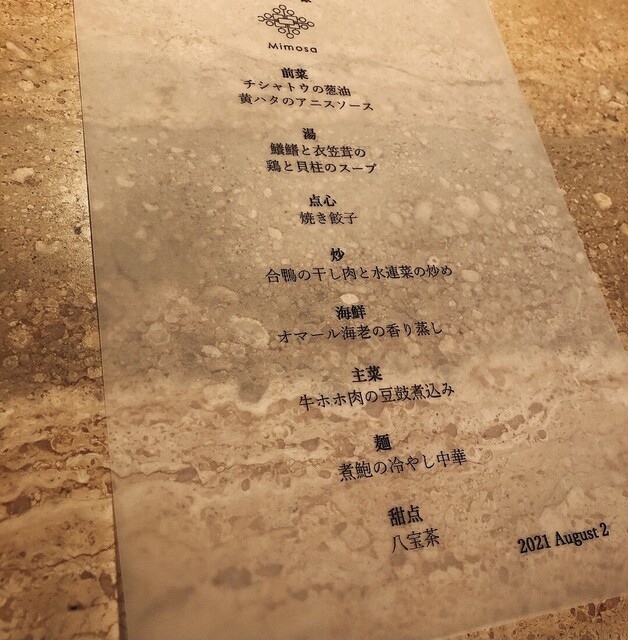 Mimosa
前菜
チシャトウの葱油
黄ハタのアニスソース
湯
鱶鰭と衣笠茸の
鶏と貝柱のスープ
点心
焼き餃子
炒
合鴨の干し肉と水連菜の炒め
海鮮
オマール海老の香り蒸し
主菜
牛ホホ肉の豆鼓煮込み
麺
煮鮑の冷やし中華
甜点
八宝茶
2021 August 2